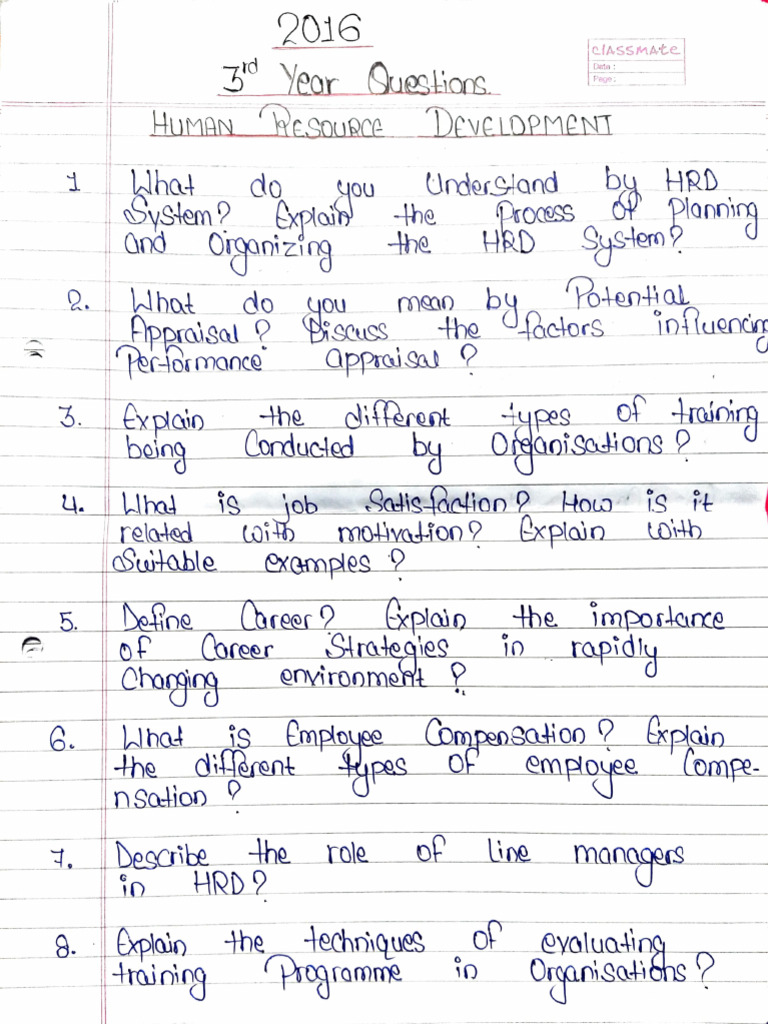 2016
3rd Year Questions.
classmate
Date :
Page :
HUMAN RESOURCE DEVELOPMENT
1 What do you Understand by HRD
System? Explain the Process of Planning
and Organizing the HRD System?
2. What do you mean by Potential
Appraisal? Discuss the factors influencing
Performance appraisal?
3. Explain the different types of training
being Conducted by Organisations?
4. What is job Satisfaction? How is it
related with motivation? Explain with
Suitable examples?
5. Define Career? Explain the importance
of Career Strategies in rapidly
Changing environment?
6. What is Employee Compensation? Explain
the different types of employee Compe-
nsation?
7. Describe the role of line managers
in HRD?
8. Explain the techniques of evaluating
training Programme in Organisations?